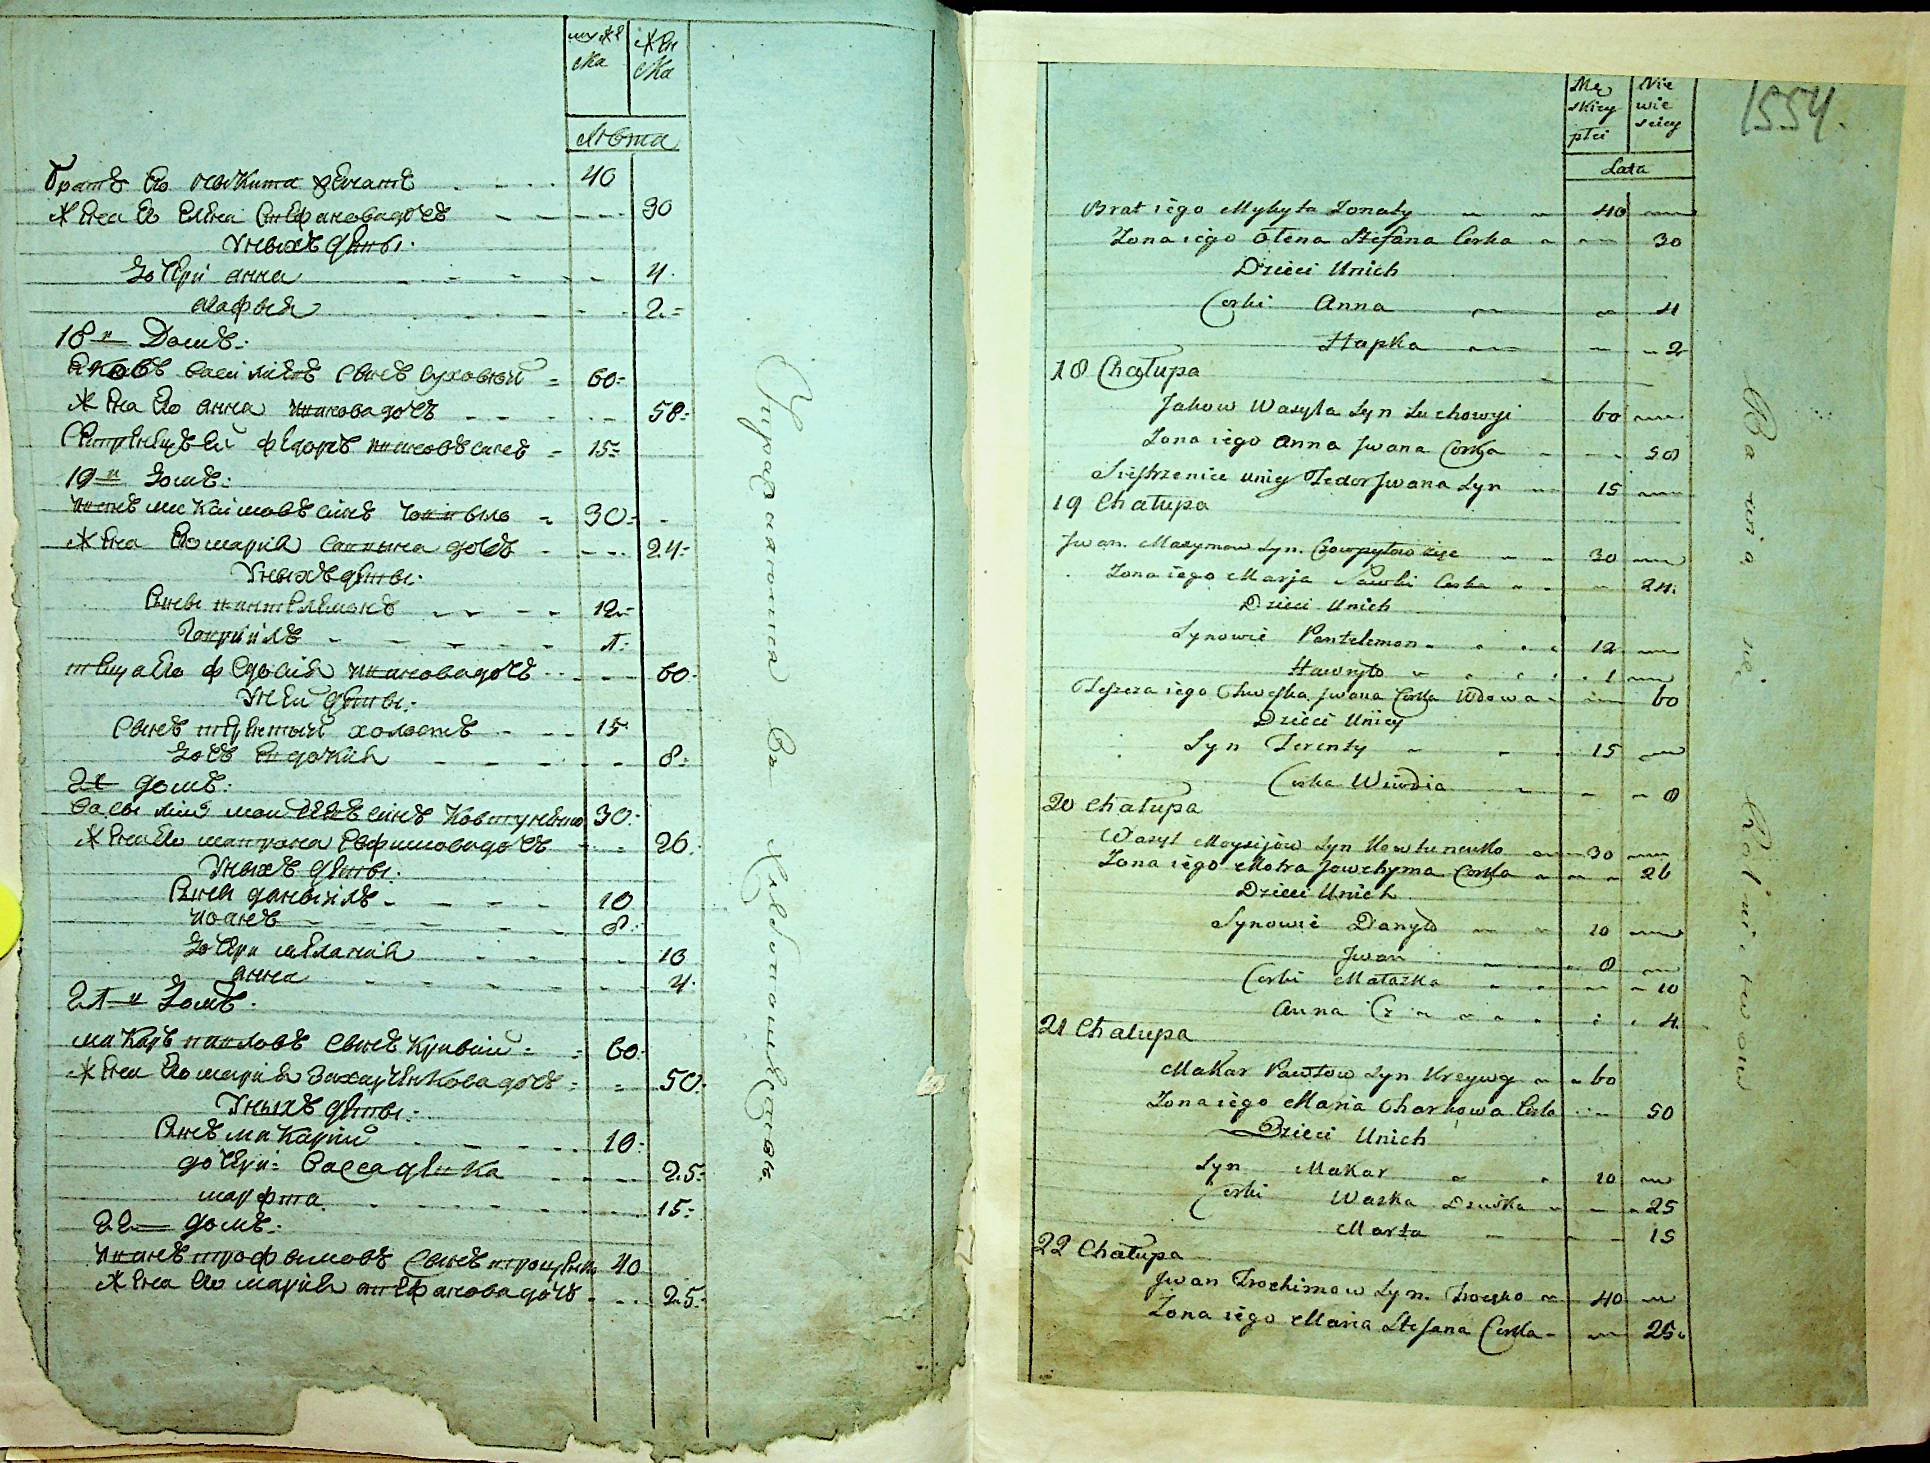 муже ска
жен ска
лѣта
братъ его никита женатъ 40
жена его елена стефанова дочь 30
у ныхъ дѣти:
дочери анна 4
агафия 2
18 домъ:
яковъ василиевъ сынъ суховый 60
жена его анна иванова дочь 58
федоръ ивановъ сынъ 15
19 домъ:
иванъ максимовъ синъ 30
жена его мария саввина дочь 24
у ныхъ дѣти:
сыны пантелемонъ 12
гавриилъ 1
теща его феодосия иванова дочь 60
у ней дѣти:
сынъ терентый холостъ 15
дочь евдокия 8
20 домъ:
василий моисеевъ синъ ковтуненко 30
жена его матрона евфимова дочь 26
у ныхъ дѣти:
сыны даныилъ 10
иоанъ 8
дочери мелания 10
анна 4
21 домъ:
макаръ павловъ сынъ кривий 60
жена его мария захаренкова дочь 50
у ныхъ дѣти:
сынъ макарий 10
дочери: васса дѣвка 25
марфта 15
22 домъ:
иванъ трофимовъ сынъ троценко 40
жена его мария стефанова дочь 25
1554.
Mę skiey płci
Nie wie sciey
Lata
Brat iego Mykyta Zonaty 40
Zona iego Ołena Stefana Corka 30
Dzieci Unich
Corki Anna 4
Hapka 2
18 Chałupa
Jakow Wasyla Syn Suchowyi 60
Zona iego Anna Jwana Corka 58
Siestrzenica uniey Fedor Jwana Syn 15
19 Chałupa
Jwan Maxymow Syn 30
Zona iego Marja Sawki Corka 24
Dzieci Unich
Synowie Pantelemon 12
Hawryło 1
Teszcza iego Chweska Jwana Corka Wdowa 60
Dzieci Uniey
Syn Terenty 15
Corka Wiwdia 8
20 Chałupa
Wasyl Moysijow Syn Kowtunenko 30
Zona iego Motra Jowchyma Corka 26
Dzieci Unich
Synowie Danyło 10
Jwan 8
Corki Małaszka 10
Anna 4
21 Chałupa
Makar Pawłow Syn Krzywy 60
Zona iego Maria Corka 50
Dzieci Unich
Syn Makar 10
Corki Waska Dziwka 25
Marta 15
22 Chałupa
Jwan Trochimow Syn Trocyko 40
Zona iego Maria Stefana Corka 25